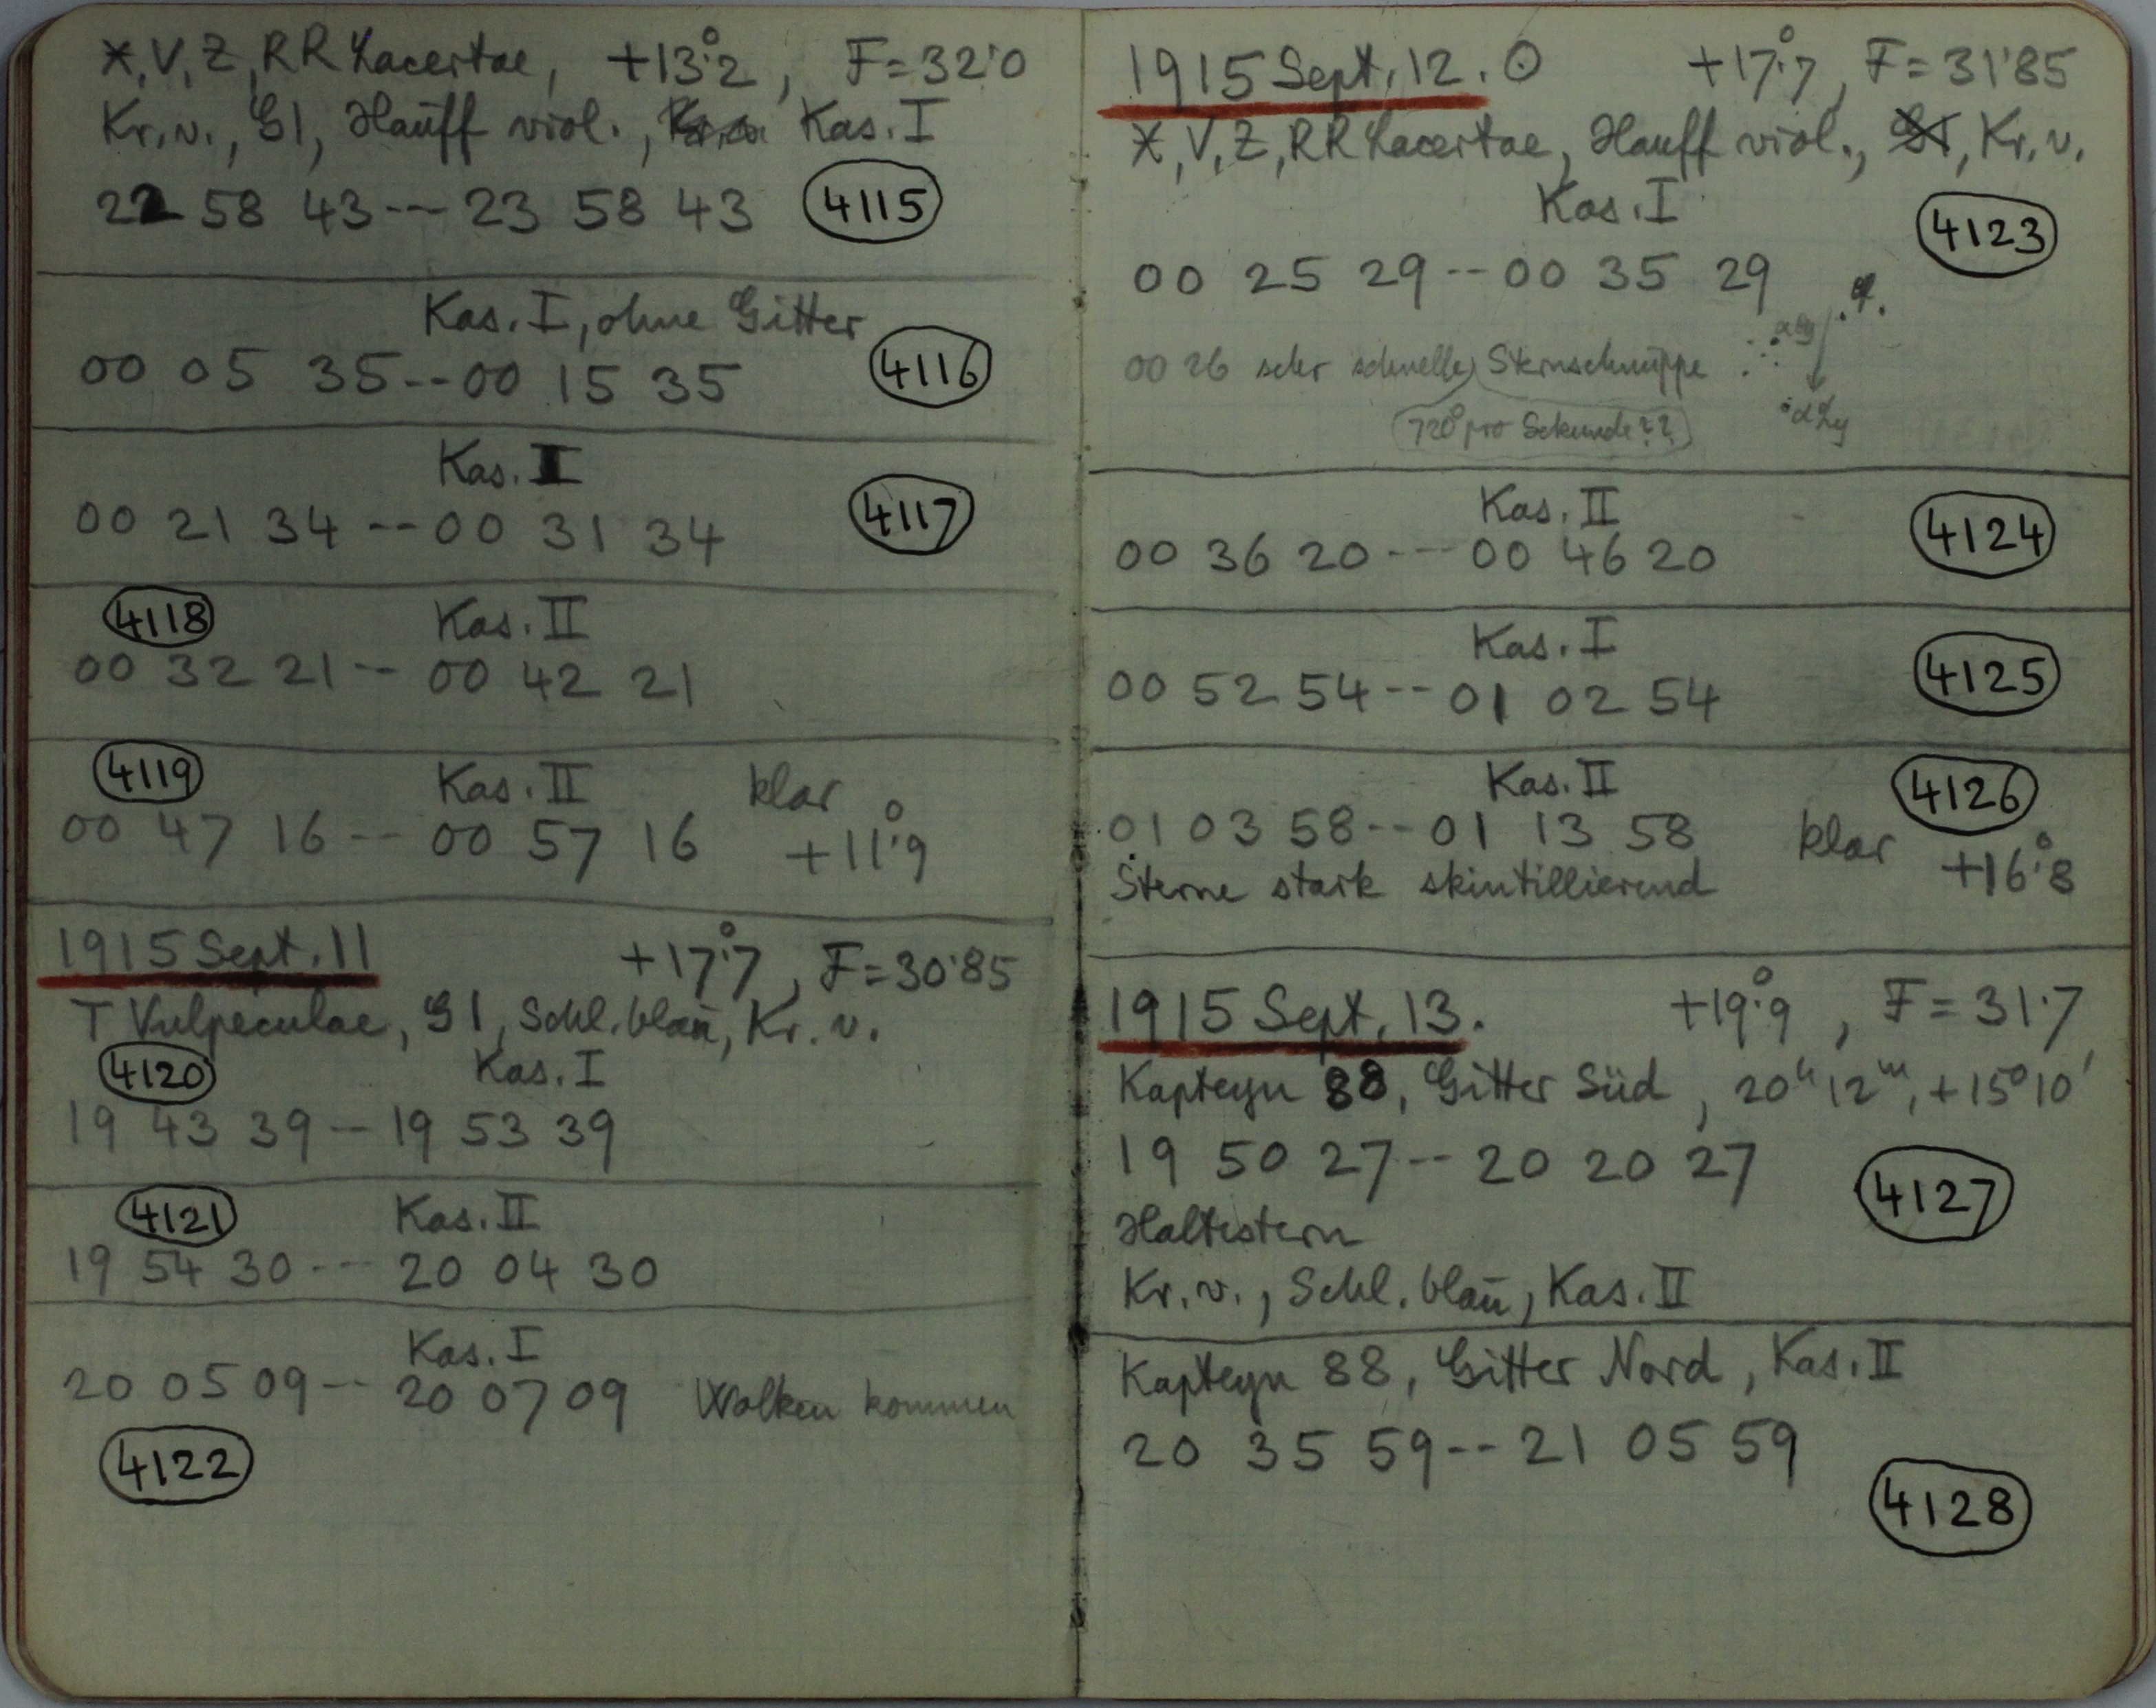 X, V, Z, RR Lacertae, +13°.2, F=32'0
Kr. v., G1, Hauff viol., Kas. I
22 58 43--23 58 43 4115
Kas. I, ohne Gitter
00 05 35--00 15 35 4116
Kas. I
00 21 34--00 31 34 4117
4118 Kas. II
00 32 21--00 42 21
4119 Kas. II klar
00 47 16--00 57 16 +11°.9
1915 Sept. 11 +17°.7, F=30'85
T Vulpeculae, G1, Schl. blau, Kr. v.
4120 Kas. I
19 43 39--19 53 39
4121 Kas. II
19 54 30---20 04 30
Kas. I
20 05 09--20 07 09 Wolken kommen
4122
1915 Sept. 12. ⊙ +17°.7, F=31'85
X, V, Z, RR Lacertae, Hauff viol., G1, Kr. v.
Kas. I 4123
00 25 29--00 35 29
00 26 sehr schnelle Sternschnuppe
720° pro Sekunde??
α Ly
Kas. II 4124
00 36 20---00 46 20
Kas. I 4125
00 52 54--01 02 54
Kas. II 4126
01 03 58--01 13 58 klar +16°.8
Sterne stark skintillierend
1915 Sept. 13. +19°.9, F=31.7
Kapteyn 88, Gitter Süd, 20h 12m, +15°10'
19 50 27--20 20 27 4127
Haltestern
Kr. v., Schl. blau, Kas. II
Kapteyn 88, Gitter Nord, Kas. II
20 35 59--21 05 59
4128